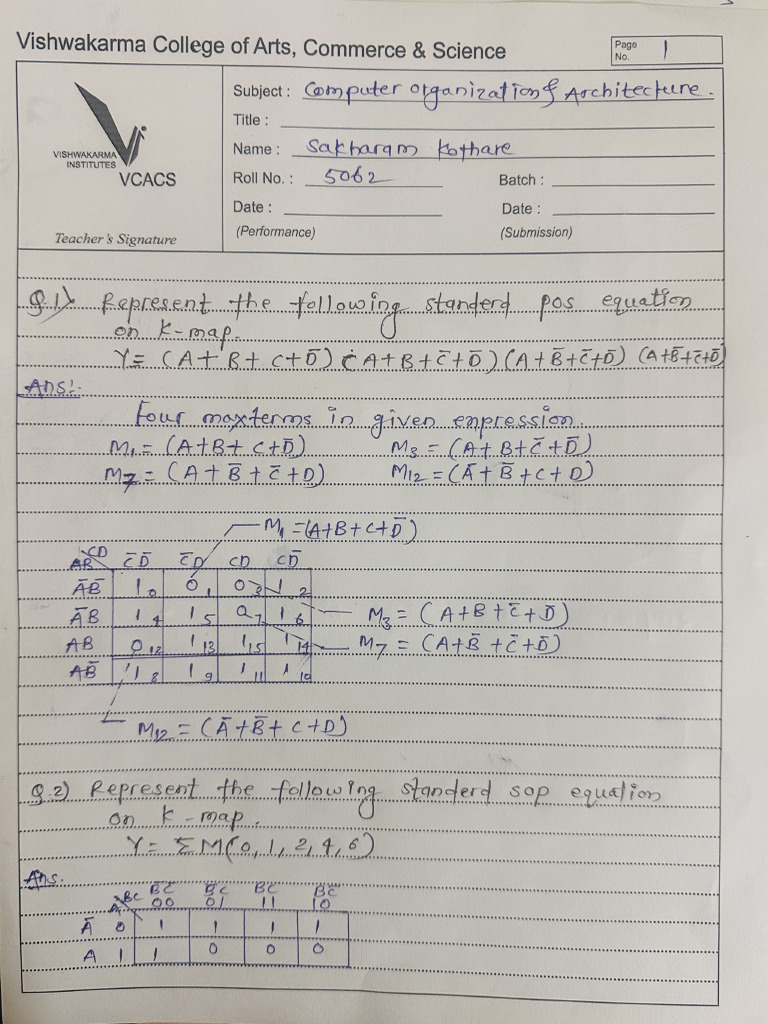 Vishwakarma College of Arts, Commerce & Science
Page No. 1
VISHWAKARMA INSTITUTES
VCACS
Teacher's Signature
Subject : Computer organization & Architecture.
Title :
Name : Sakharam Kothare
Roll No. : 5062 Batch :
Date : Date :
(Performance) (Submission)
Q.1) Represent the following standerd pos equation
on K-map.
Y = (A+B+C+D̄) (A+B+C̄+D̄) (A+B̄+C̄+D̄) (A+B̄+C̄+D̄)
Ans:-
Four maxterms in given enpression.
M1 = (A+B+C+D̄) M3 = (A+B+C̄+D̄)
M7 = (A+B̄+C̄+D) M12 = (Ā+B̄+C+D)
M1 = (A+B+C+D̄)
AB CD C̄D̄ C̄D CD CD̄
ĀB̄ 1 0 0 1 0 3 1 2
ĀB 1 4 1 5 0 7 1 6
M3 = (A+B+C̄+D̄)
AB 0 12 1 13 1 15 1 14
M7 = (A+B̄+C̄+D̄)
AB̄ 1 8 1 9 1 11 1 10
M12 = (Ā+B̄+C+D)
Q.2) Represent the following standerd sop equation
on K-map.
Y = ΣM(0,1,2,4,6)
Ans.
A BC B̄C̄ B̄C BC BC̄
00 01 11 10
Ā 0 1 1 1 1
A 1 1 0 0 0